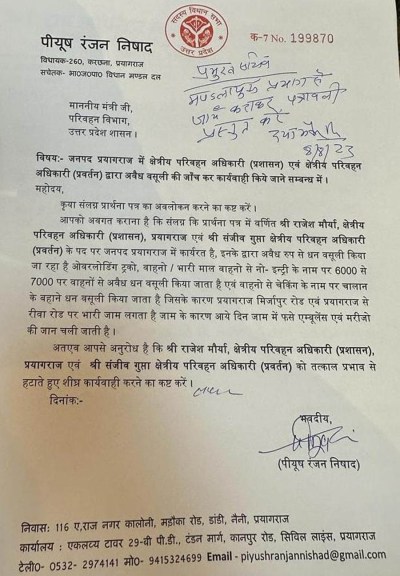 सदस्य विधान सभा
उत्तर प्रदेश
क-7 No. 199870
पीयूष रंजन निषाद
विधायक-260, करछना, प्रयागराज
सचेतक- भा०ज०पा० विधान मण्डल दल
प्रमुख सचिव
मण्डलायुक्त प्रयागराज से
जांच कराकर पत्रावली
प्रस्तुत करें
8/8/23
माननीय मंत्री जी,
परिवहन विभाग,
उत्तर प्रदेश शासन।
विषय:- जनपद प्रयागराज में क्षेत्रीय परिवहन अधिकारी (प्रशासन) एवं क्षेत्रीय परिवहन
अधिकारी (प्रवर्तन) द्वारा अवैध वसूली की जाँच कर कार्यवाही किये जाने सम्बन्ध में।
महोदय,
कृपा संलग्न प्रार्थना पत्र का अवलोकन करने का कष्ट करें।
आपको अवगत कराना है कि संलग्न कि प्रार्थना पत्र में वर्णित श्री राजेश मौर्या, क्षेत्रीय
परिवहन अधिकारी (प्रशासन), प्रयागराज एवं श्री संजीव गुप्ता क्षेत्रीय परिवहन अधिकारी
(प्रवर्तन) के पद पर जनपद प्रयागराज में कार्यरत है, इनके द्वारा अवैध रुप से धन वसूली किया
जा रहा है ओवरलोडिंग ट्रको, वाहनो / भारी माल वाहनो से नो- इन्ट्री के नाम पर 6000 से
7000 पर वाहनों से अवैध धन वसूली किया जाता है एवं वाहनो से चेकिंग के नाम पर चालान
के बहाने धन वसूली किया जाता है जिसके कारण प्रयागराज मिर्जापुर रोड एवं प्रयागराज से
रीवा रोड पर भारी जाम लगता है जाम के कारण आये दिन जाम में फसे एम्बूलेंस एवं मरीजो
की जान चली जाती है।
अतएव आपसे अनुरोध है कि श्री राजेश मौर्या, क्षेत्रीय परिवहन अधिकारी (प्रशासन),
प्रयागराज एवं श्री संजीव गुप्ता क्षेत्रीय परिवहन अधिकारी (प्रवर्तन) को तत्काल प्रभाव से
हटाते हुए शीघ्र कार्यवाही करने का कष्ट करें।
दिनांक:-
भवदीय,
(पीयूष रंजन निषाद)
निवास: 116 ए,राज नगर कालोनी, मड़ौका रोड, डांडी, नैनी, प्रयागराज
कार्यालय : एकलव्य टावर 29-वी पी.डी., टंडन मार्ग, कानपुर रोड, सिविल लाइंस, प्रयागराज
टेली0- 0532- 2974141 मो0- 9415324699 Email - piyushranjannishad@gmail.com